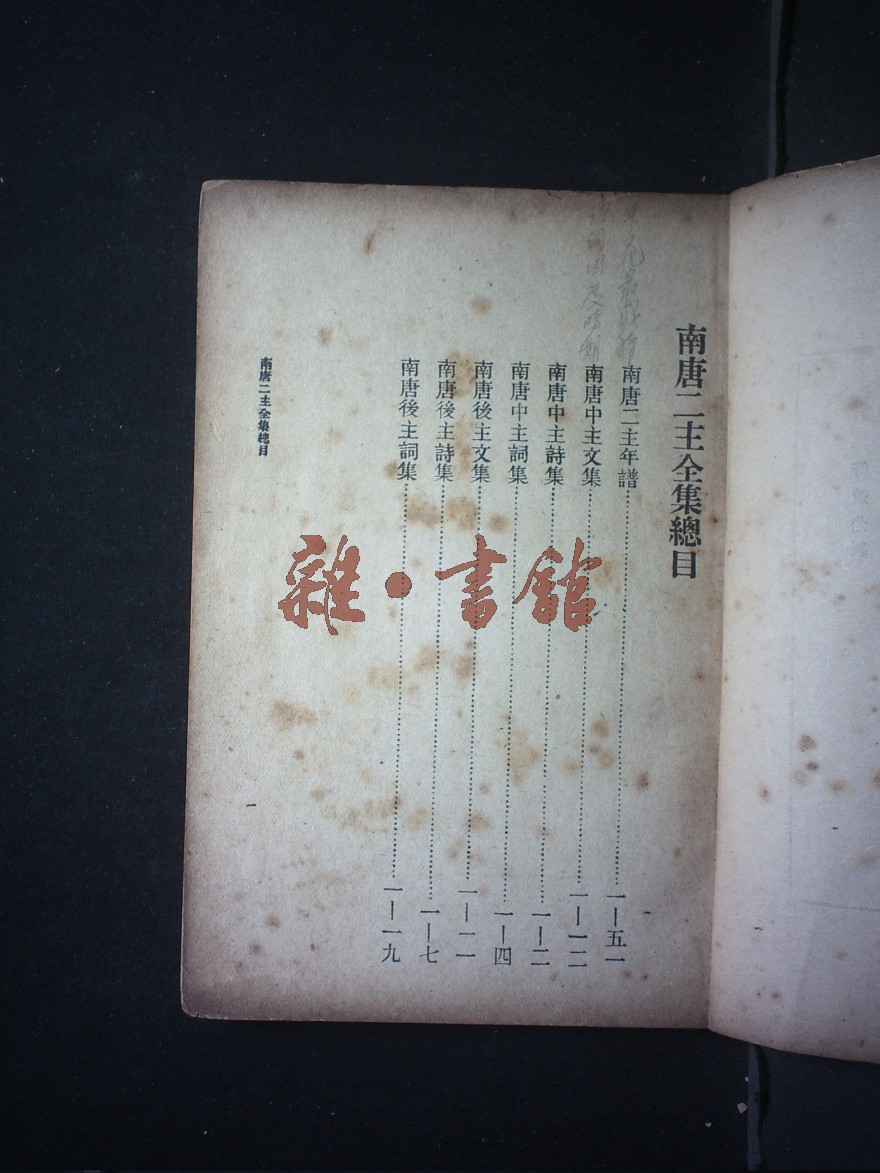 南唐二主全集總目
南唐二主年譜⋯⋯一—五一
南唐中主文集⋯⋯一—一二
南唐中主詩集⋯⋯一—二
南唐中主詞集⋯⋯一—四
南唐後主文集⋯⋯一—二一
南唐後主詩集⋯⋯一—七
南唐後主詞集⋯⋯一—一九
南唐二主全集總目
一
雜·書館